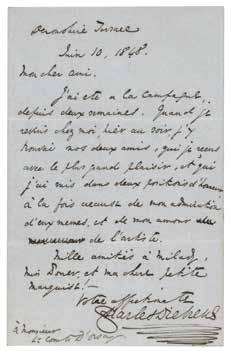 Devonshire Terrace
Juin 10, 1848.
Mon cher ami.
J'ai été à la campagne,
depuis deux semaines. Quand je
revins chez moi hier au soir, j'y
trouvai nos deux amis, que je reçus
avec le plus grand plaisir, et que
j'ai mis dans deux positions d'honneur
à la fois de mon admiration
d'eux-mêmes, et de mon amour
de l'artiste.
Mille amitiés à Miladi,
Miss Power, et ma chère petite
Marquise!
Votre affectionné
Charles Dickens
à Monsieur
Le Comte D'Orsay